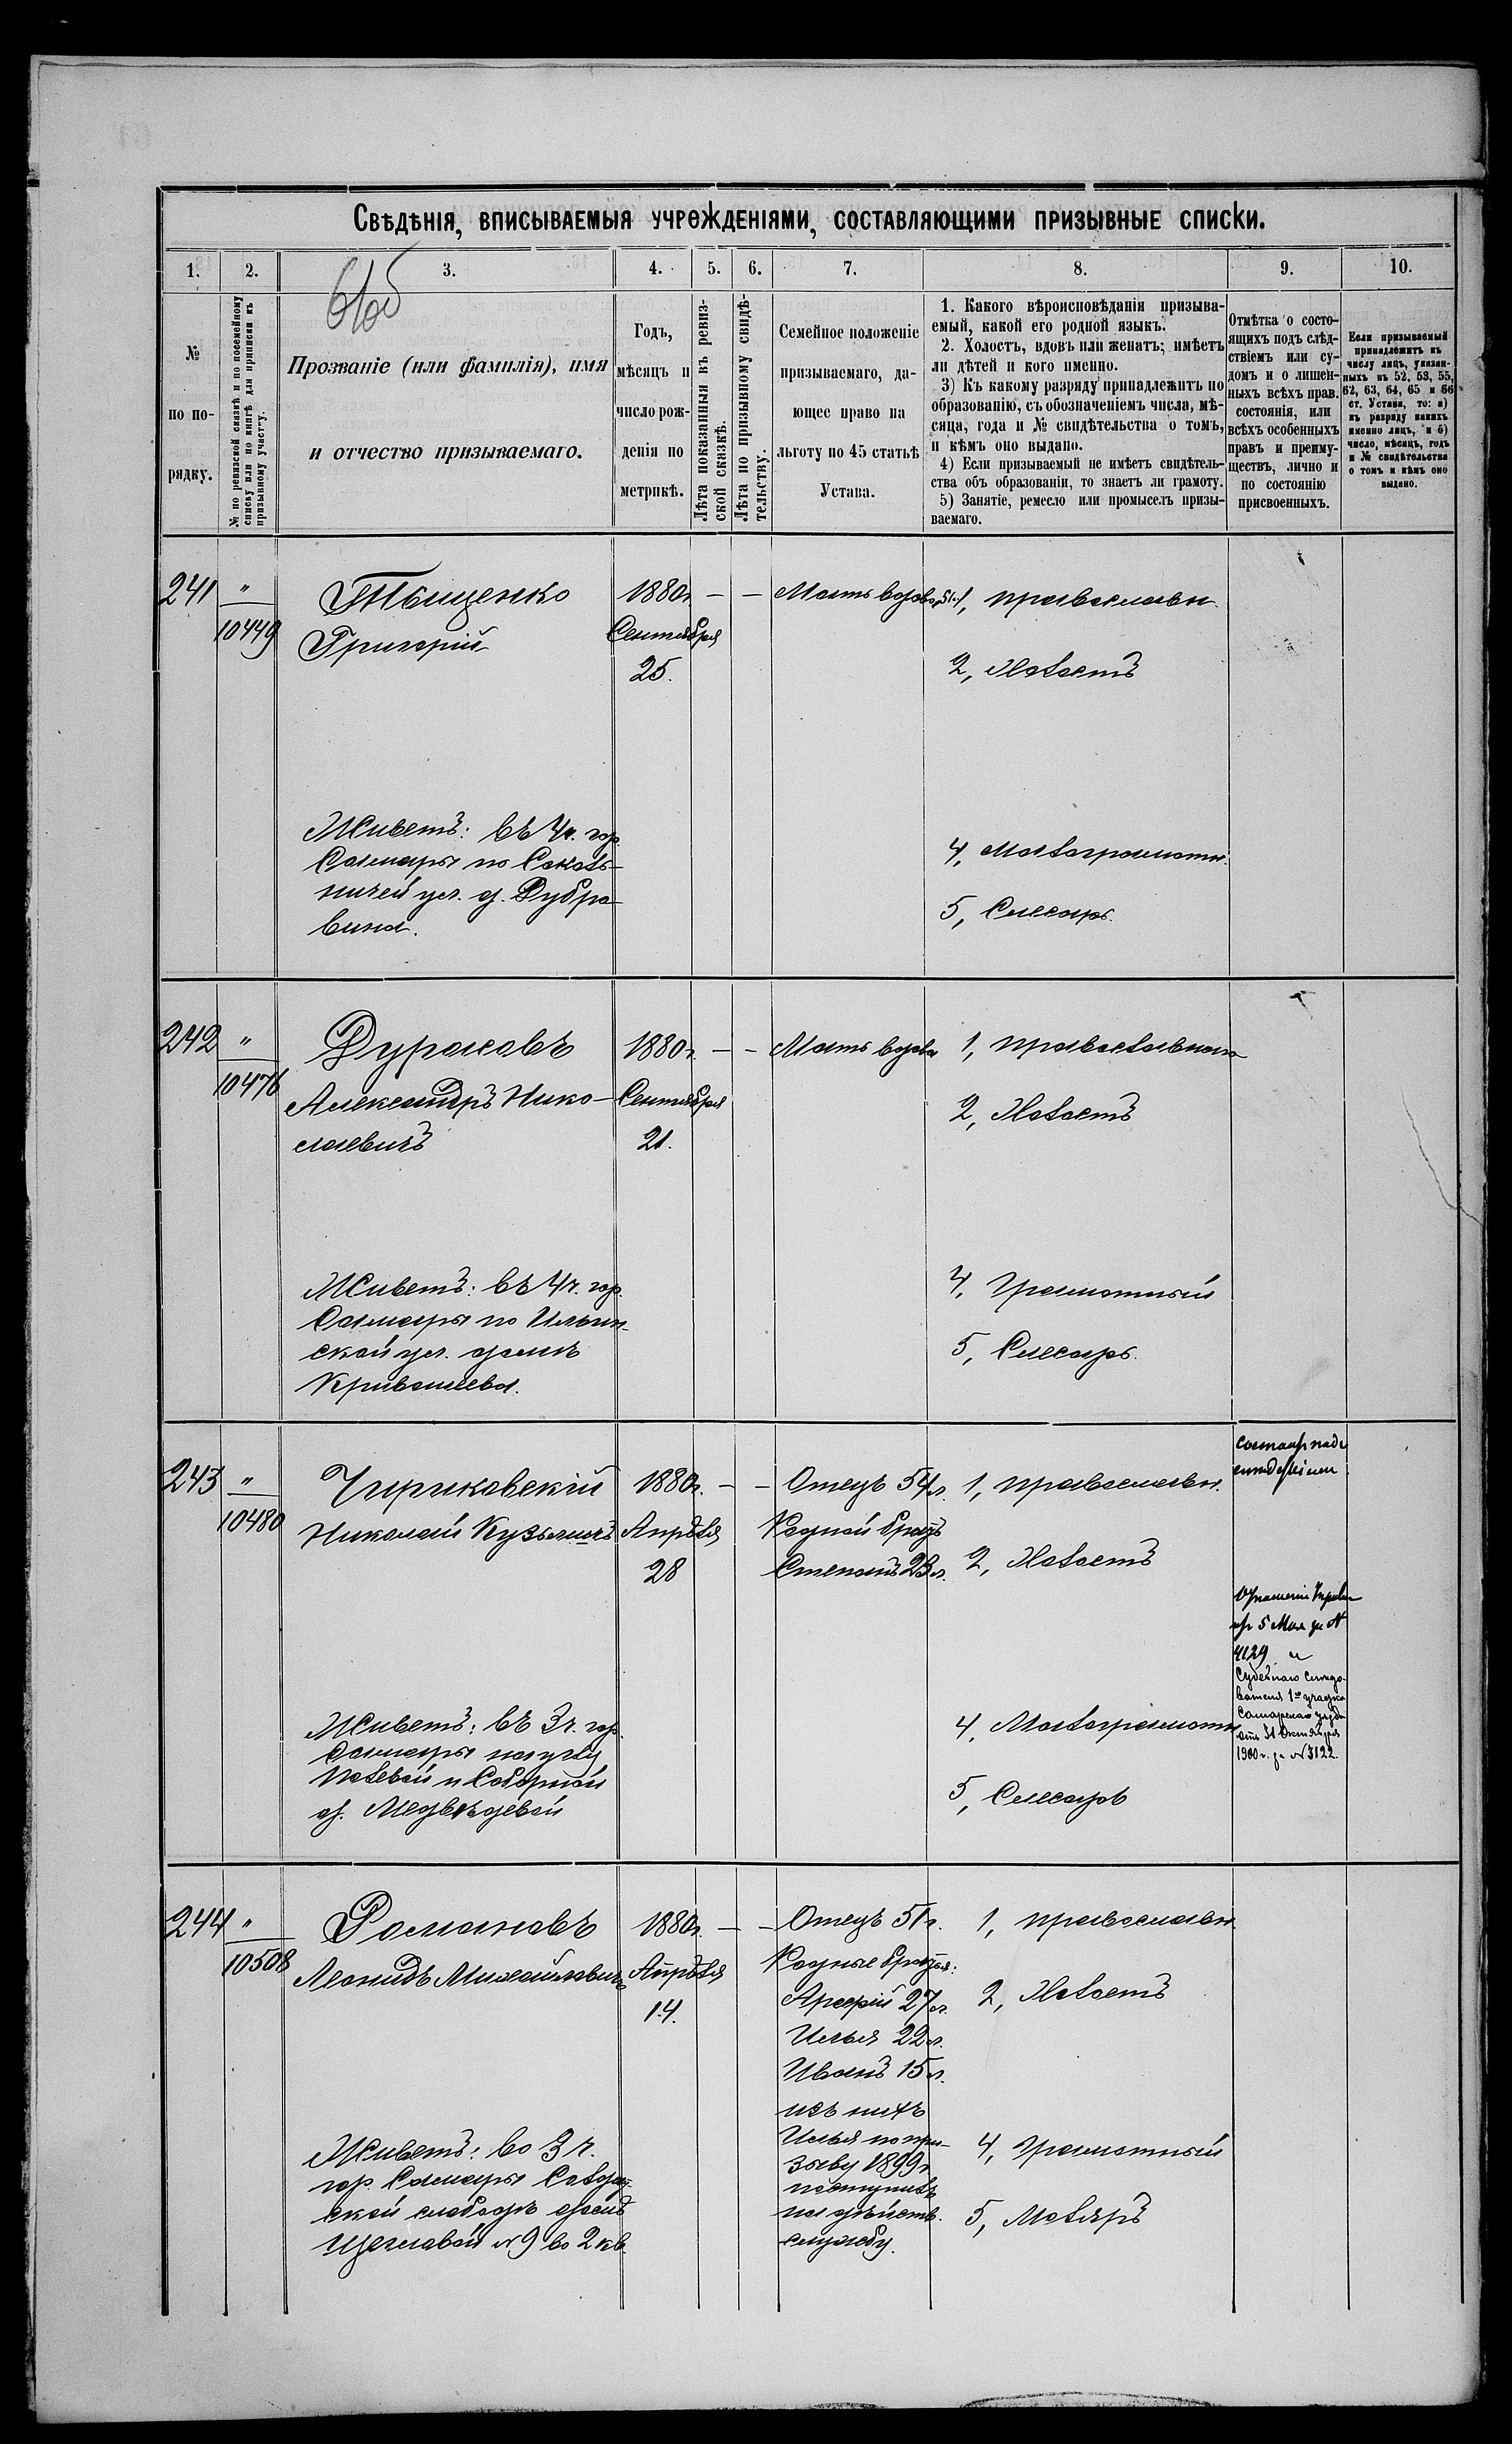 Свѣдѣнія, вписываемыя учрежденіями, составляющими призывные списки.
1. 2. 3. 4. 5. 6. 7. 8. 9. 10.
61об
№
по по-
рядку.
№ по ревизской сказкѣ и по посемейному
списку или по книгѣ для приписки къ
призывному участку.
Прозваніе (или фамилія), имя
и отчество призываемаго.
Годъ,
мѣсяцъ и
число рож-
денія по
метрикѣ.
Лѣта показанныя въ ревиз-
ской сказкѣ.
Лѣта по призывному свидѣ-
тельству.
Семейное положеніе
призываемаго, да-
ющее право на
льготу по 45 статьѣ
Устава.
1. Какого вѣроисповѣданія призыва-
емый, какой его родной языкъ.
2. Холостъ, вдовъ или женатъ; имѣетъ
ли дѣтей и кого именно.
3) Къ какому разряду принадлежитъ по
образованію, съ обозначеніемъ числа, мѣ-
сяца, года и № свидѣтельства о томъ,
и кѣмъ оно выдано.
4) Если призываемый не имѣетъ свидѣтель-
ства объ образованіи, то знаетъ ли грамоту.
5) Занятіе, ремесло или промыселъ призы-
ваемаго.
Отмѣтка о состо-
ящихъ подъ слѣд-
ствіемъ или су-
домъ и о лишен-
ныхъ всѣхъ прав.
состоянія, или
всѣхъ особенныхъ
правъ и преиму-
ществъ, лично и
по состоянію
присвоенныхъ.
Если призываемый
принадлежитъ къ
числу лицъ, указан-
ныхъ въ 52, 53, 55,
62, 63, 64, 65 и 66
ст. Устава, то: а)
къ разряду какихъ
именно лицъ, и б)
число, мѣсяцъ, годъ
и № свидѣтельства
о томъ и кѣмъ оно
выдано.
241 " Тыщенко 1880г. — — Мать вдова 51л. 1, православн.
10449 Григорій Сентября
25. 2, Холостъ
Живетъ: въ 4ч. гор.
Самары по Соколь-
ничей ул. д. Дубро-
вина.
4, Малограмотн.
5, Слесарь.
242 " Дураковъ 1880г. — — Мать вдова 1, православнаго
10476 Александръ Нико- Сентября
лаевичъ 21. 2, Холостъ
Живетъ: въ 4ч. гор.
Самары по Ильин-
ской ул. домъ
Кривошеева.
4, Грамотный
5, Слесарь.
243 " Чириковскій 1880г. — — Отецъ 54л. 1, православн.
10480 Николай Кузьмичъ Апрѣля Родной братъ
28 Степанъ 23л. 2, Холостъ
Живетъ: въ 3ч. гор.
Самары на углу
Полевой и Соборной
д. Медвѣдевой
4, Малограмотн.
5, Слесарь
5 Мая за №
4129 и
Судебнаго слѣдо-
вателя 1го участка
Самарскаго уѣзда
отъ 31 Октября
1900г. за № 3122.
244 " Романовъ 1880г. — — Отецъ 51г. 1, православн.
10508 Леонидъ Михайловичъ Апрѣля Родные братья:
14. 27л. 2, Холостъ
Илья 22л.
Иванъ 15л.
изъ нихъ
Илья по при-
зыву 1899г.
поступилъ
на дѣйств.
службу.
Живетъ: во 3 ч.
гор. Самары Солдат-
ской слободѣ домъ
Щегловой №9 во 2 кв.
4, Грамотный
5, Моляръ